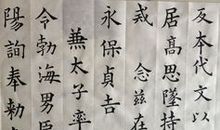 反本代文以
居高思墜持
戒 念兹在
永保貞吉
兼太子率
令勃海男臣
陽詢奉勅